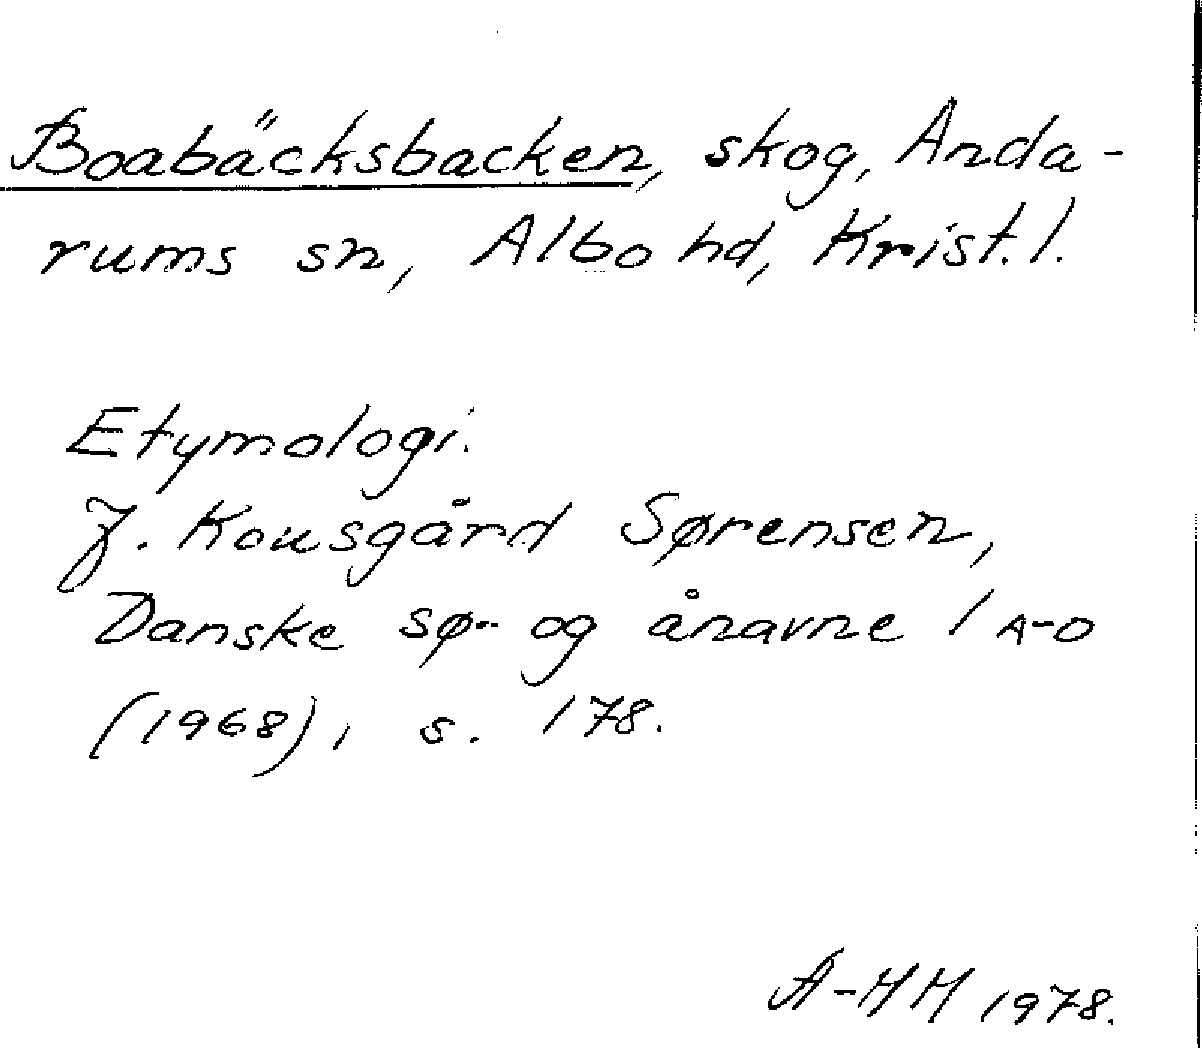 Boabäcksbacken, skog, Anda-
rums sn, Albo hd, Krist. l.
Etymologi.
J. Kousgård Sørensen,
Danske sø- og ånavne 1 A-O
(1968), s. 178.
A-HH 1978.